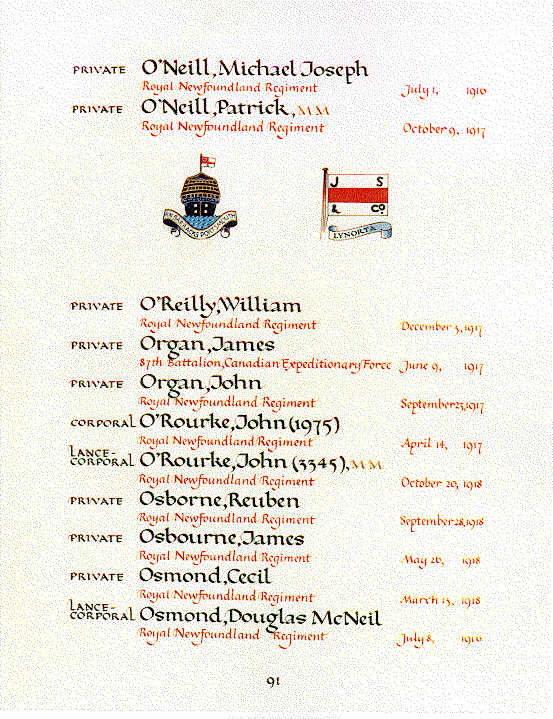 PRIVATE O'Neill, Michael Joseph
Royal Newfoundland Regiment July 1, 1916
PRIVATE O'Neill, Patrick, MM
Royal Newfoundland Regiment October 9, 1917
J S
& Co
LYNORTA
PRIVATE O'Reilly, William
Royal Newfoundland Regiment December 3, 1917
PRIVATE Organ, James
87th Battalion, Canadian Expeditionary Force June 9, 1917
PRIVATE Organ, John
Royal Newfoundland Regiment September 23, 1917
CORPORAL O'Rourke, John (1975)
Royal Newfoundland Regiment April 14, 1917
LANCE-
CORPORAL O'Rourke, John (3345), MM
Royal Newfoundland Regiment October 20, 1918
PRIVATE Osborne, Reuben
Royal Newfoundland Regiment September 28, 1918
PRIVATE Osbourne, James
Royal Newfoundland Regiment May 26, 1918
PRIVATE Osmond, Cecil
Royal Newfoundland Regiment March 13, 1918
LANCE-
CORPORAL Osmond, Douglas McNeil
Royal Newfoundland Regiment July 8, 1916
91